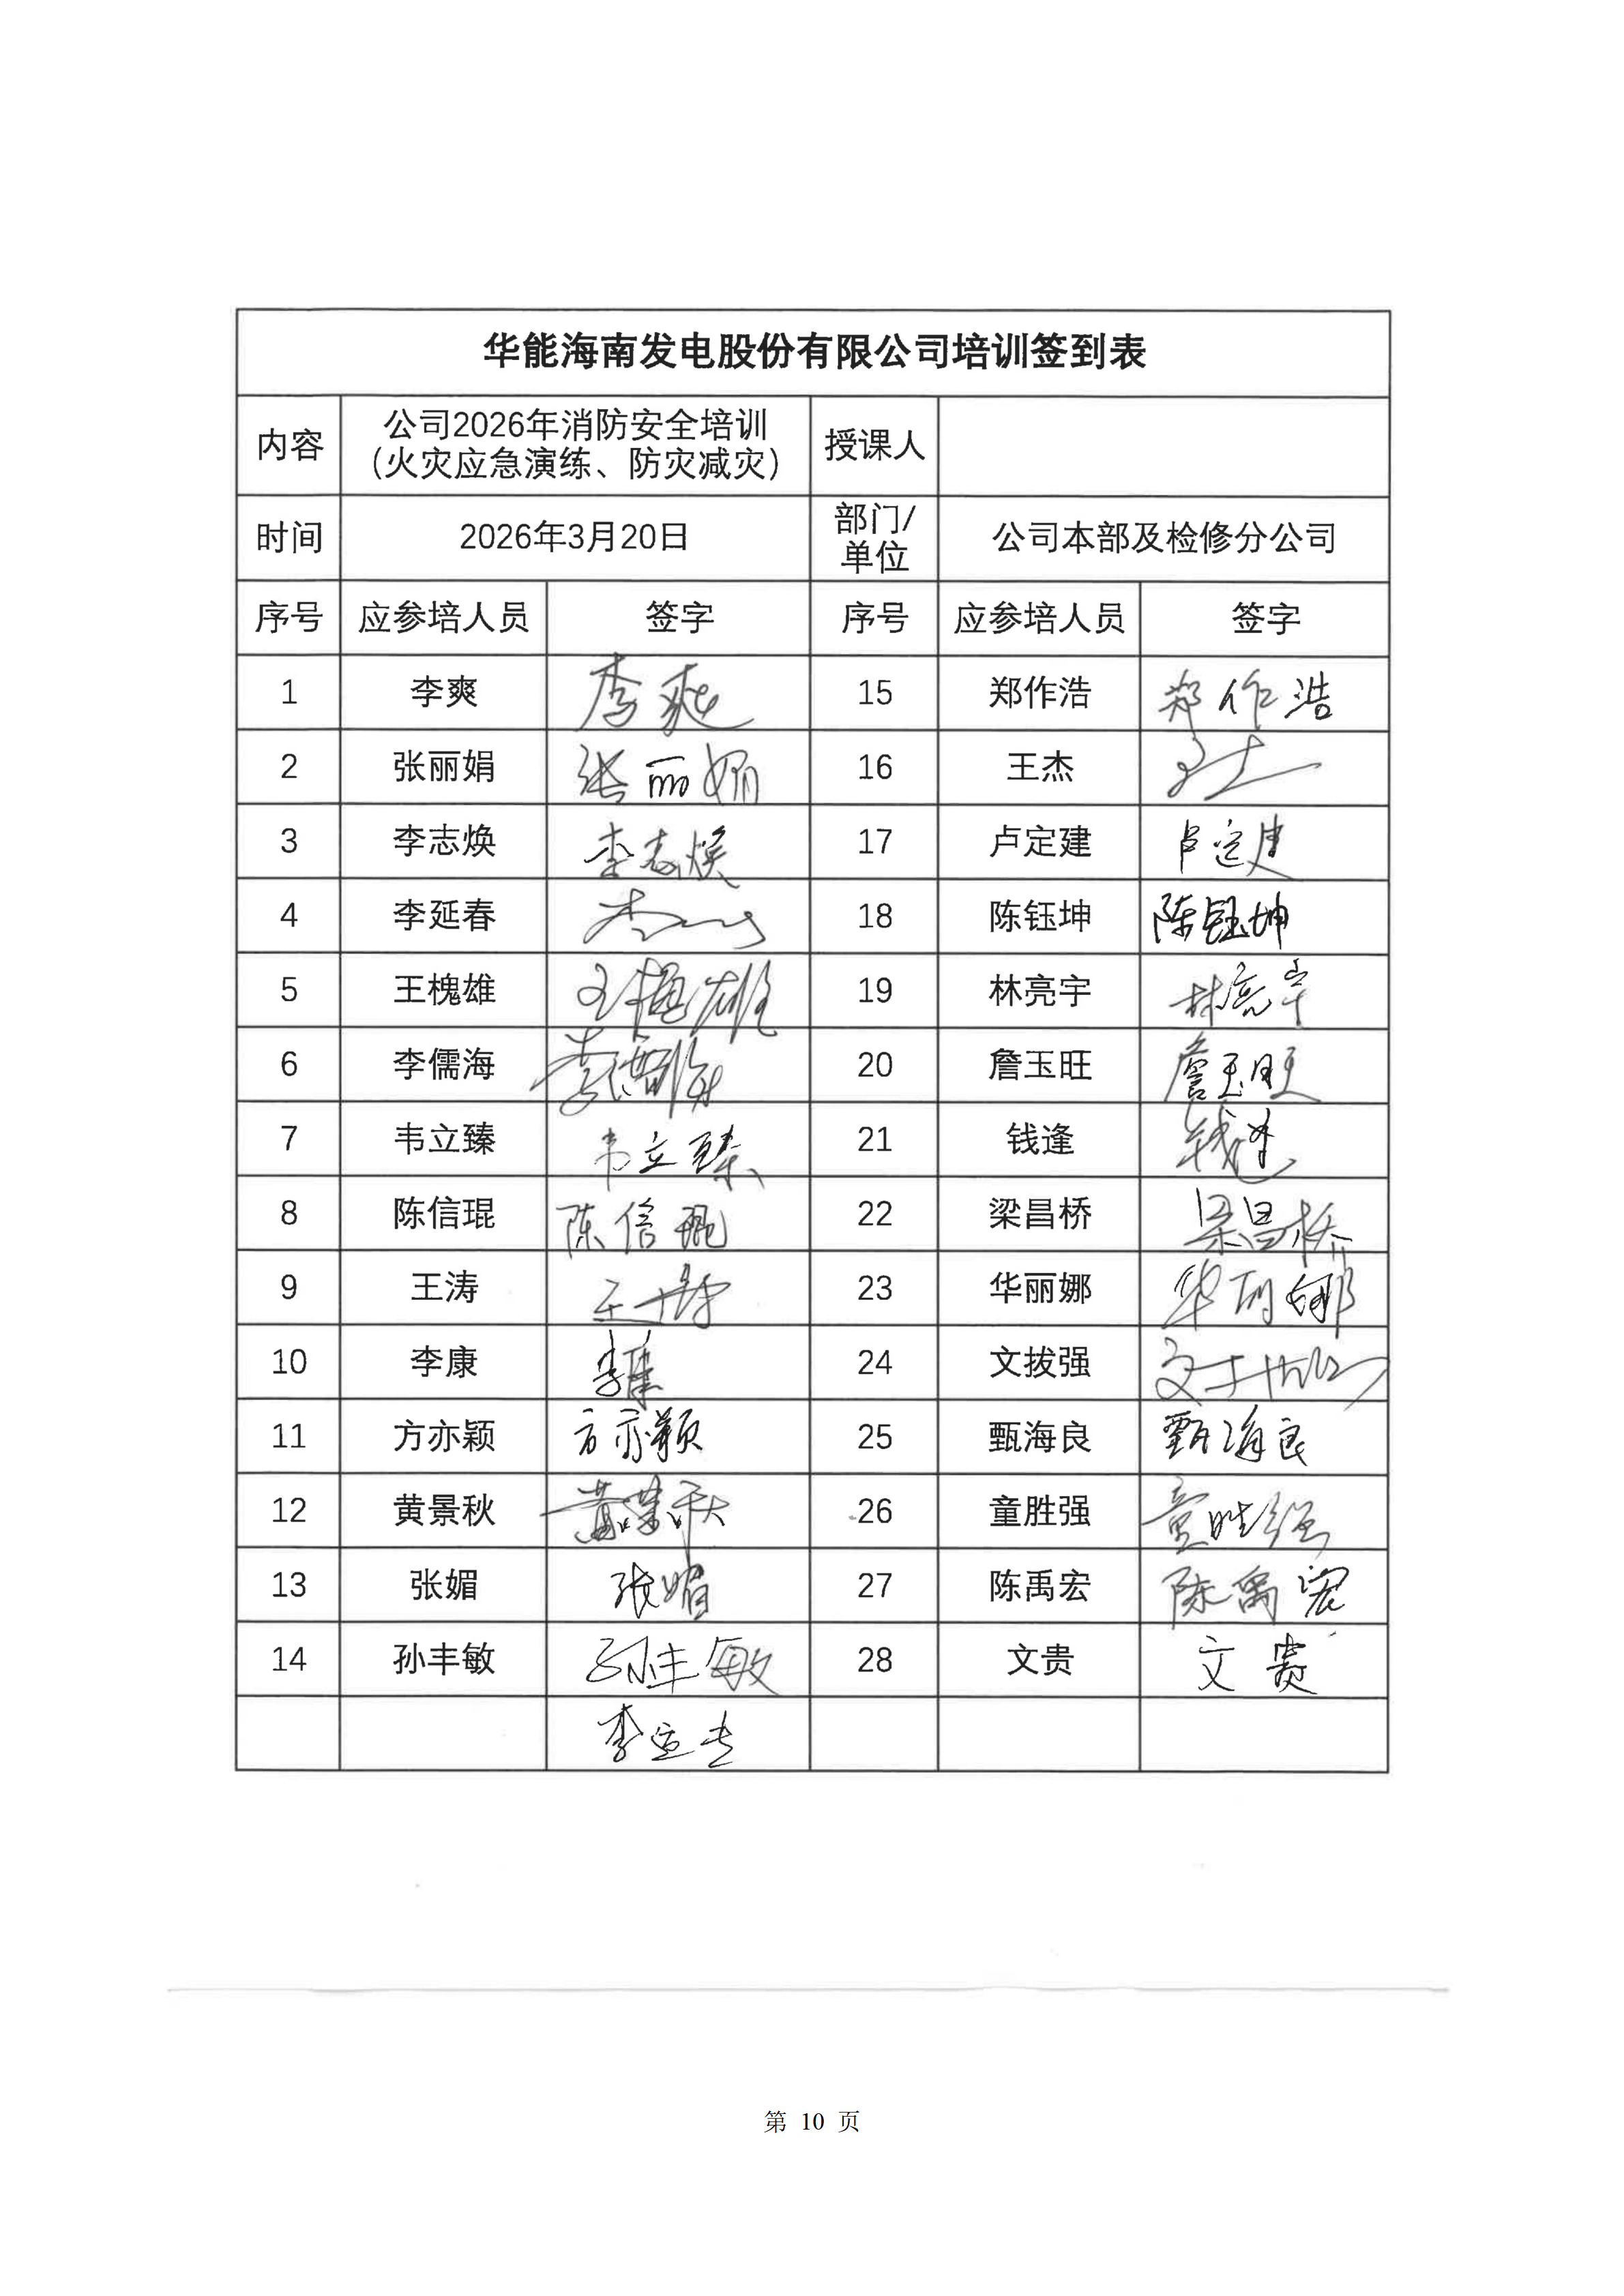 华能海南发电股份有限公司培训签到表
内容 公司2026年消防安全培训（火灾应急演练、防灾减灾） 授课人
时间 2026年3月20日 部门/单位 公司本部及检修分公司
序号 应参培人员 签字 序号 应参培人员 签字
1 李爽 李爽 15 郑作浩 郑作浩
2 张丽娟 张丽娟 16 王杰 王杰
3 李志焕 李志焕 17 卢定建 卢定建
4 李延春 李 18 陈钰坤 陈钰坤
5 王槐雄 王槐雄 19 林亮宇 林亮宇
6 李儒海 李儒海 20 詹玉旺 詹玉旺
7 韦立臻 韦立臻 21 钱逢 钱逢
8 陈信琨 陈信琨 22 梁昌桥 梁昌桥
9 王涛 王涛 23 华丽娜 华丽娜
10 李康 李康 24 文拔强 文
11 方亦颖 方亦颖 25 甄海良 甄海良
12 黄景秋 黄景秋 26 童胜强 童胜强
13 张媚 张媚 27 陈禹宏 陈禹宏
14 孙丰敏 孙丰敏 28 文贵 文贵
李运
第 10 页